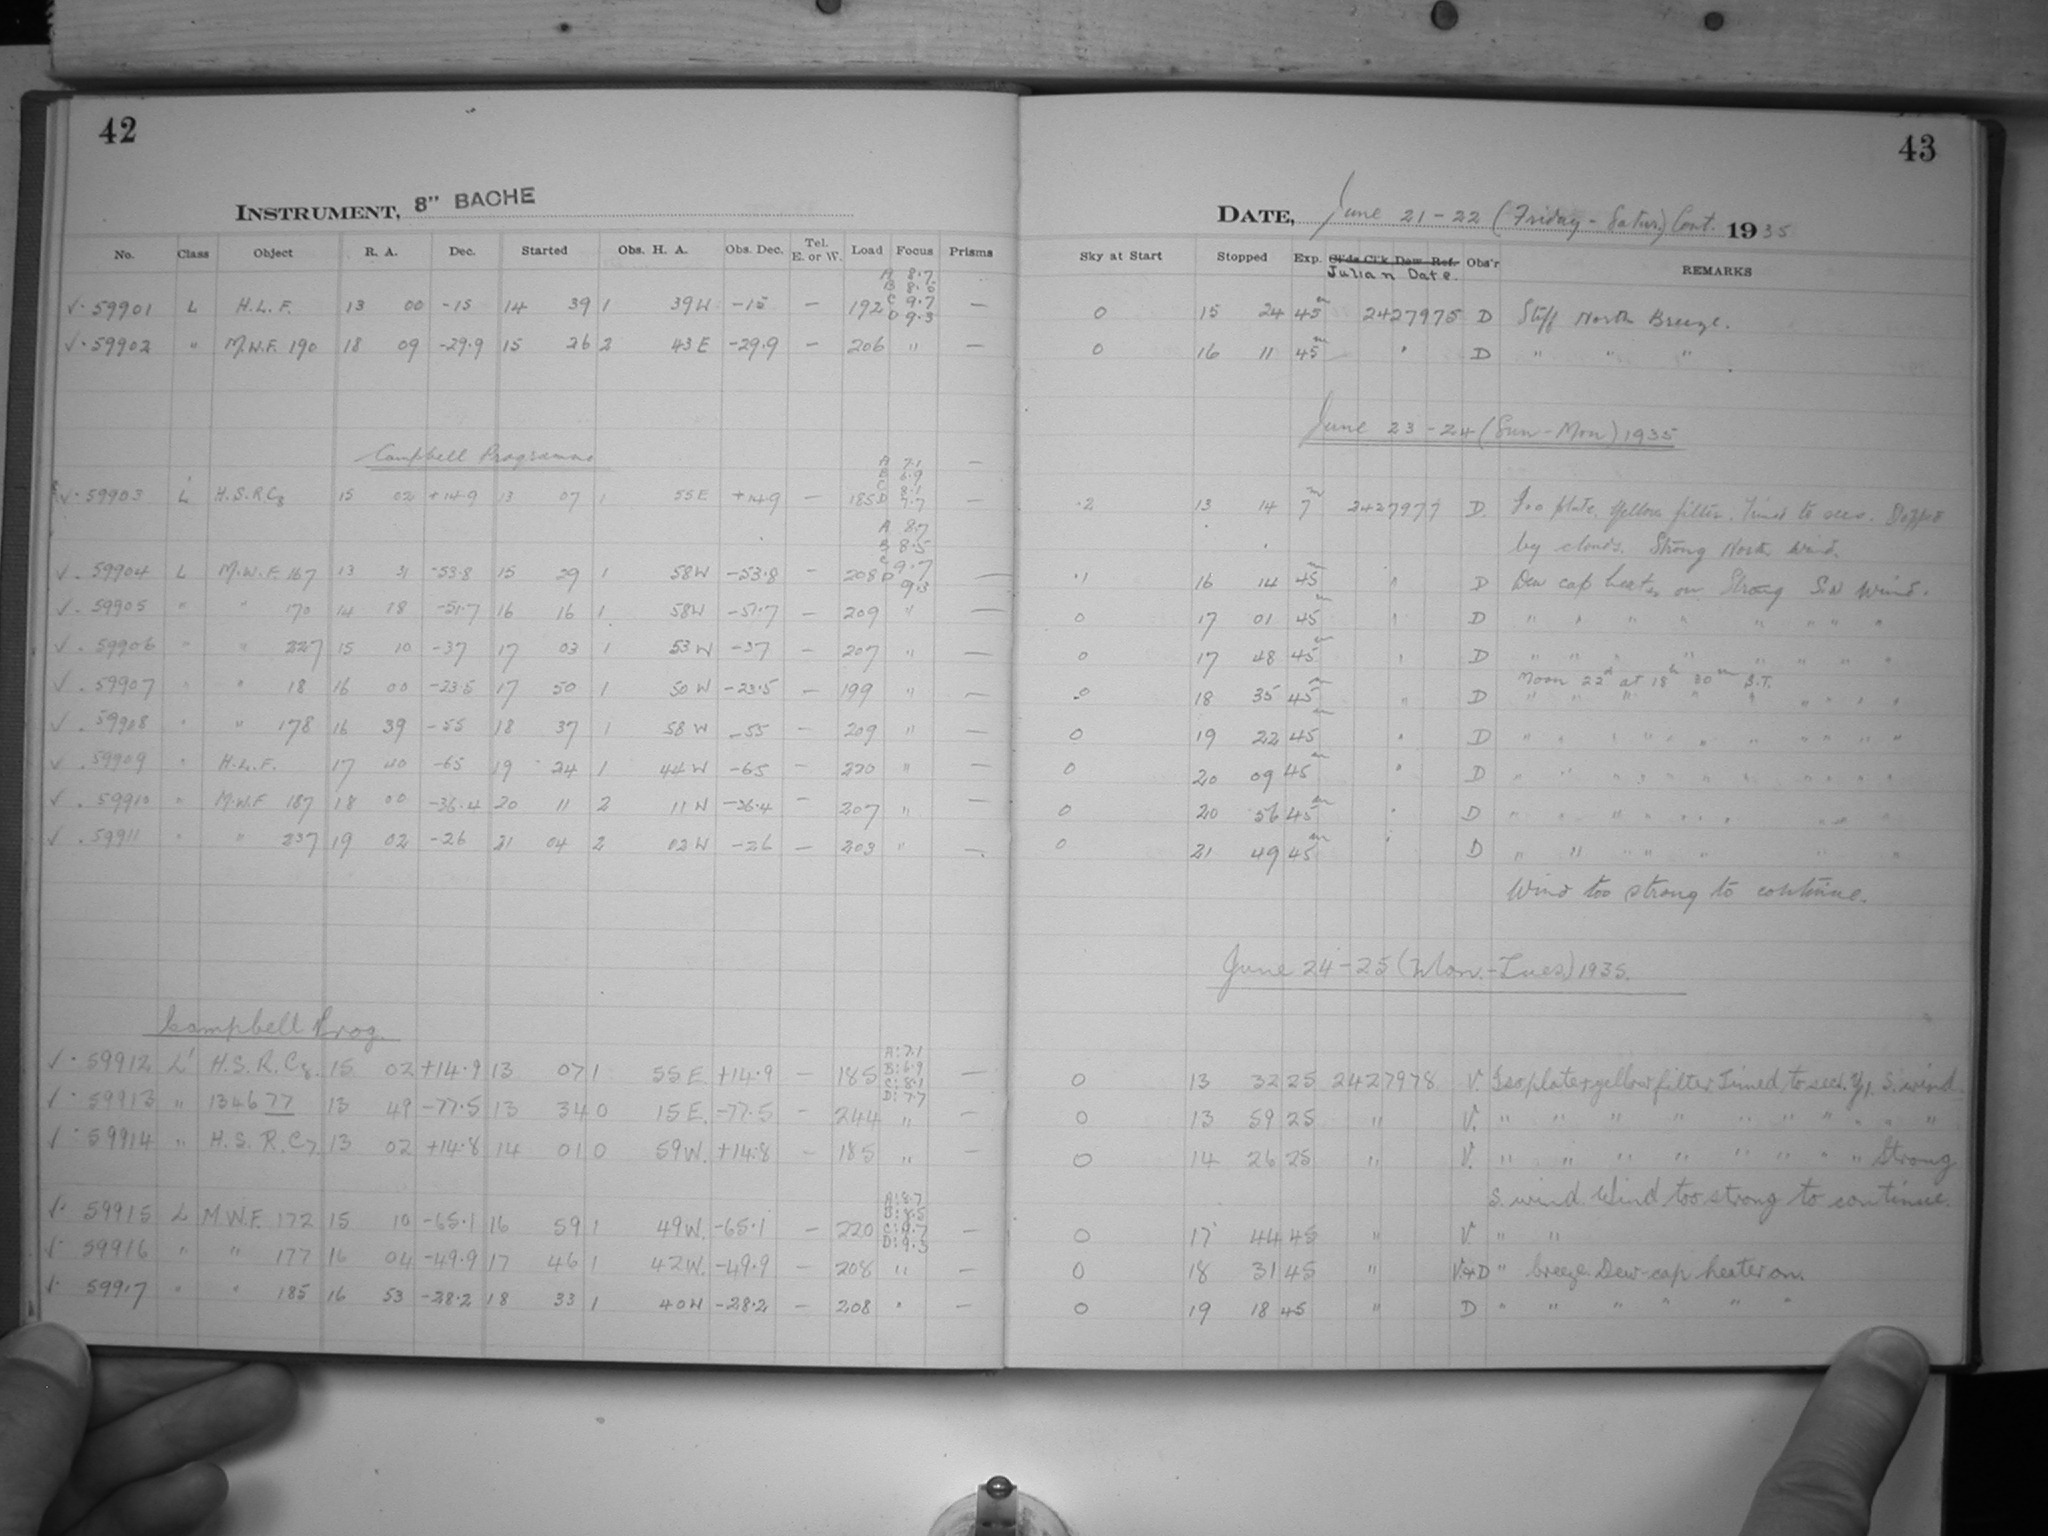 42
INSTRUMENT, 8" BACHE
No. Class Object R. A. Dec. Started Obs. H. A. Obs. Dec. Tel. E. or W. Load Focus Prisms
A 8.7
B 8.5
C 9.7
D 9.3
✓· 59901 L H.L.F. 13 00 -15 14 39 1 39W -15 — 192 —
✓· 59902 " M.W.F. 190 18 09 -29.9 15 26 2 43E -29.9 — 206 " —
Campbell Programme
A 7.1
B 6.9
C 8.1
D 7.7
✓· 59903 L' H.S.R.C8 15 02 +14.9 13 07 1 55E +14.9 — 185 —
A 8.7
B 8.5
C 9.7
D 9.3
✓. 59904 L M.W.F. 167 13 31 -53.8 15 29 1 58W -53.8 — 208 —
✓. 59905 " " 170 14 18 -51.7 16 16 1 58W -51.7 — 209 " —
✓. 59906 " " 227 15 10 -37 17 03 1 53W -37 — 207 " —
✓. 59907 " " 18 16 00 -23.5 17 50 1 50W -23.5 — 199 " —
✓. 59908 " " 178 16 39 -55 18 37 1 58W -55 — 209 " —
✓. 59909 " H.L.F. 17 40 -65 19 24 1 44W -65 — 220 " —
✓. 59910 " M.W.F 187 18 00 -36.4 20 11 2 11W -36.4 — 207 " —
✓. 59911 " " 237 19 02 -26 21 04 2 02W -26 — 203 " —
Campbell Prog.
A: 7.1
B: 6.9
C: 8.1
D: 7.7
✓· 59912 L' H.S.R.C8. 15 02 +14.9 13 07 1 55E. +14.9 — 185 —
✓· 59913 " 134677 13 49 -77.5 13 34 0 15E. -77.5 — 244 " —
✓· 59914 " H.S.R.C7 13 02 +14.8 14 01 0 59W. +14.8 — 185 " —
A: 8.7
B: 8.5
C: 9.7
D: 9.3
✓· 59915 L M.W.F. 172 15 10 -65.1 16 59 1 49W. -65.1 — 220 —
✓· 59916 " " 177 16 04 -49.9 17 46 1 42W. -49.9 — 208 " —
✓· 59917 " " 185 16 53 -28.2 18 33 1 40W -28.2 — 208 " —
43
DATE, June 21-22 (Friday - Satur.) Cont. 1935
Sky at Start Stopped Exp. Sl'ds Cl'k Dew. Ref. Obs'r REMARKS
Julian Date.
0 15 24 45m 2427975 D Stiff North Breeze.
0 16 11 45m " D " " "
June 23-24 (Sun-Mon) 1935
.2 13 14 7m 2427977 D. Iso plate. Yellow filter. Timed to secs. Stopped
by clouds. Strong North wind.
.1 16 14 45m " D Dew cap heater on Strong S.W Wind.
0 17 01 45m " D " " " " " " " "
0 17 48 45m " D " " " " " " " "
Moon 22d at 18h 30m S.T.
0 18 35 45m " D " " " " " " " "
0 19 22 45m " D " " " " " " " "
0 20 09 45m " D " " " " " " " "
0 20 56 45m " D " " " " " " " "
0 21 49 45m " D " " " " " "
Wind too strong to continue.
June 24-25 (Mon.-Tues) 1935.
0 13 32 25 2427978 V. Iso plate + yellow filter. Timed to secs. S. wind.
0 13 59 25 " V. " " " " " " " " "
0 14 26 25 " V. " " " " " " " " Strong
S. wind. Wind too strong to continue.
0 17 44 45 " V " "
0 18 31 45 " V+D " breeze. Dew-cap heater on.
0 19 18 45 " D " " " " " "